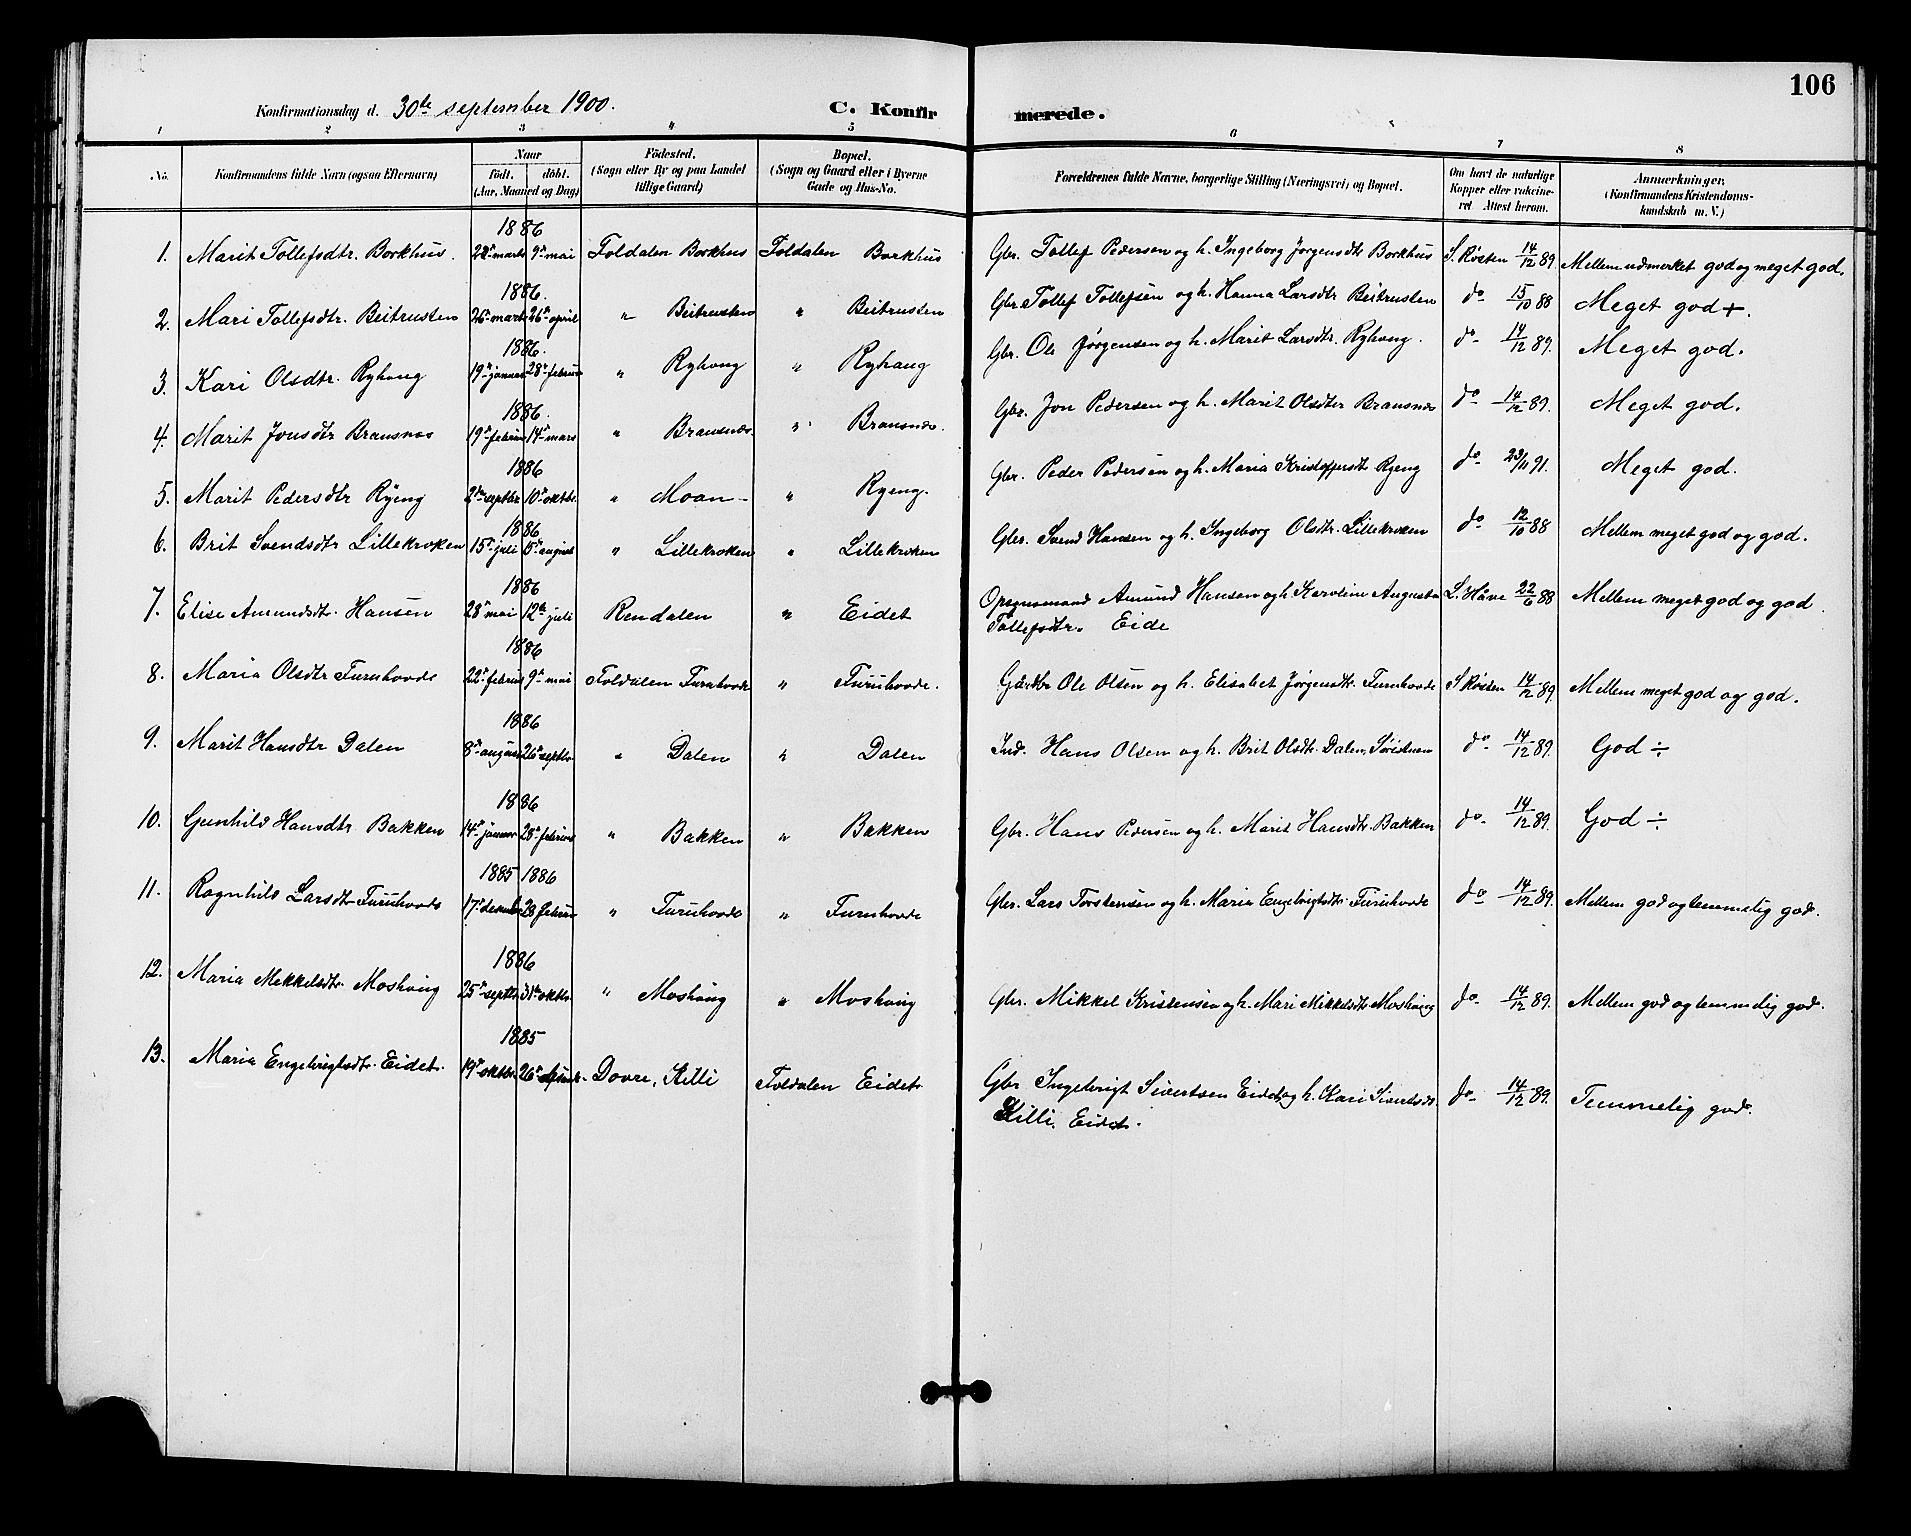 106
Konfirmationsdag d. 30te september 1900. C. Konfirmerede.
1 2 3 4 5 6 7 8
No. Konfirmandens fulde Navn (ogsaa Efternavn) Naar födt. döbt. (Aar, Maaned og Dag) Födested. (Sogn eller By og paa Landet tillige Gaard) Bopæl. (Sogn og Gaard eller i Byerne Gade og Hus-No. Forældrenes fulde Navne, borgerlige Stilling (Næringsvei) og Bopæl. Om havt de naturlige Kopper eller vakcineret Attest herom. Anmærkninger. (Konfirmandens Kristendomskundskab m. V.)
1886
1. Marit Tollefsdtr. Borkhus. marts 9de mai Foldalen Borkhus Foldalen Borkhus Gbr. Tollef Pedersen og h. Ingeborg Jørgensdtr Borkhus S. Røsten 14/12 89. Mellem udmerket god og meget god.
1886.
2. Mari Tollefsdtr. Beitrusten 26de marts 26de april " Beitrusten " Beitrusten Gbr. Tollef Tollefsen og h. Hanna Larsdtr Beitrusten do 15/10 88 Meget god +.
1886.
3. Kari Olsdtr. Ryhaug 19de januar 28de februar " Ryhaug " Ryhaug Gbr. Ole Jørgensen og h. Marit Larsdtr. Ryhaug. do 14/12 89. Meget god.
1886.
4. Marit Jonsdtr Bransnæs 19de februar 14de mars " Bransnæs. " Bransnæs. Gbr. Jon Pedersen og h. Marit Olsdter Bransnæs do 14/12 89. Meget god.
1886
5. Marit Pedersdtr Ryeng 2den septbr 10de oktbr. " Moan " Ryeng. Gbr. Peder Pedersen og h. Maria Kristoffersdt Ryeng do 23/11 91. Meget god.
1886
6. Brit Svendsdtr Lillekroken 15de juli 15de august " Lillekroken " Lillekroken Gbr. Svend Hansen og h. Ingeborg Olsdtr. Lillekroken do 12/10 88 Mellem meget god og god.
1886
7. Elise Amundsdtr. Hansen 28de mai 12te juli Rendalen " Eidet Opsynsmand Amund Hansen og h. Karoline Augusta L. Håve 22/6 88 Mellem meget god og god.
Tollefsdtr. Eide
1886
8. Maria Olsdtr Furuhovde 22de februar 9de mai Foldalen Furuhovde " Furuhovde. Ole Olsen og h. Elisabet Jørgensdtr. Furuhovde S. Røsten 14/12 89. Mellem meget god og god.
1886
9. Marit Hansdtr Dalen 8de august 26de septbr. " Dalen " Dalen Ind. Hans Olsen og h. Brit Olsdtr. Dalen, do 14/12 89. God ÷
1886
10. Gunhild Hansdtr Bakken 14de januar 28de februar " Bakken " Bakken Gbr. Hans Pedersen og h. Marit Hansdtr. Bakken do 14/12 89. God ÷
1885 1886
11. Ragnhild Larsdtr Furuhovde 17de desember 28 februar " Furuhovde " Furuhovde Gbr. Lars Torstensen og h. Maria Engebrigtsdtr. Furuhovde do 14/12 89. Mellem god og temmelig god.
1886
12. Maria Mekkelsdtr. Moshaug 25de septbr. 31te oktbr. " Moshaug " Moshaug Gbr. Mikkel Kristensen og h. Mari Mikkelsdtr Moshaug do 14/12 89. Mellem god og temmelig god.
1885
13. Maria Engebrigtsdtr. Eidet. 19de oktbr. 26de Dovre, Killi Foldalen Eidet Gbr Ingebrigt Sivertsen Eidet og h. Kari Sivertsdt. do 14/12 89. Temmelig god.
Killi, Eidet.